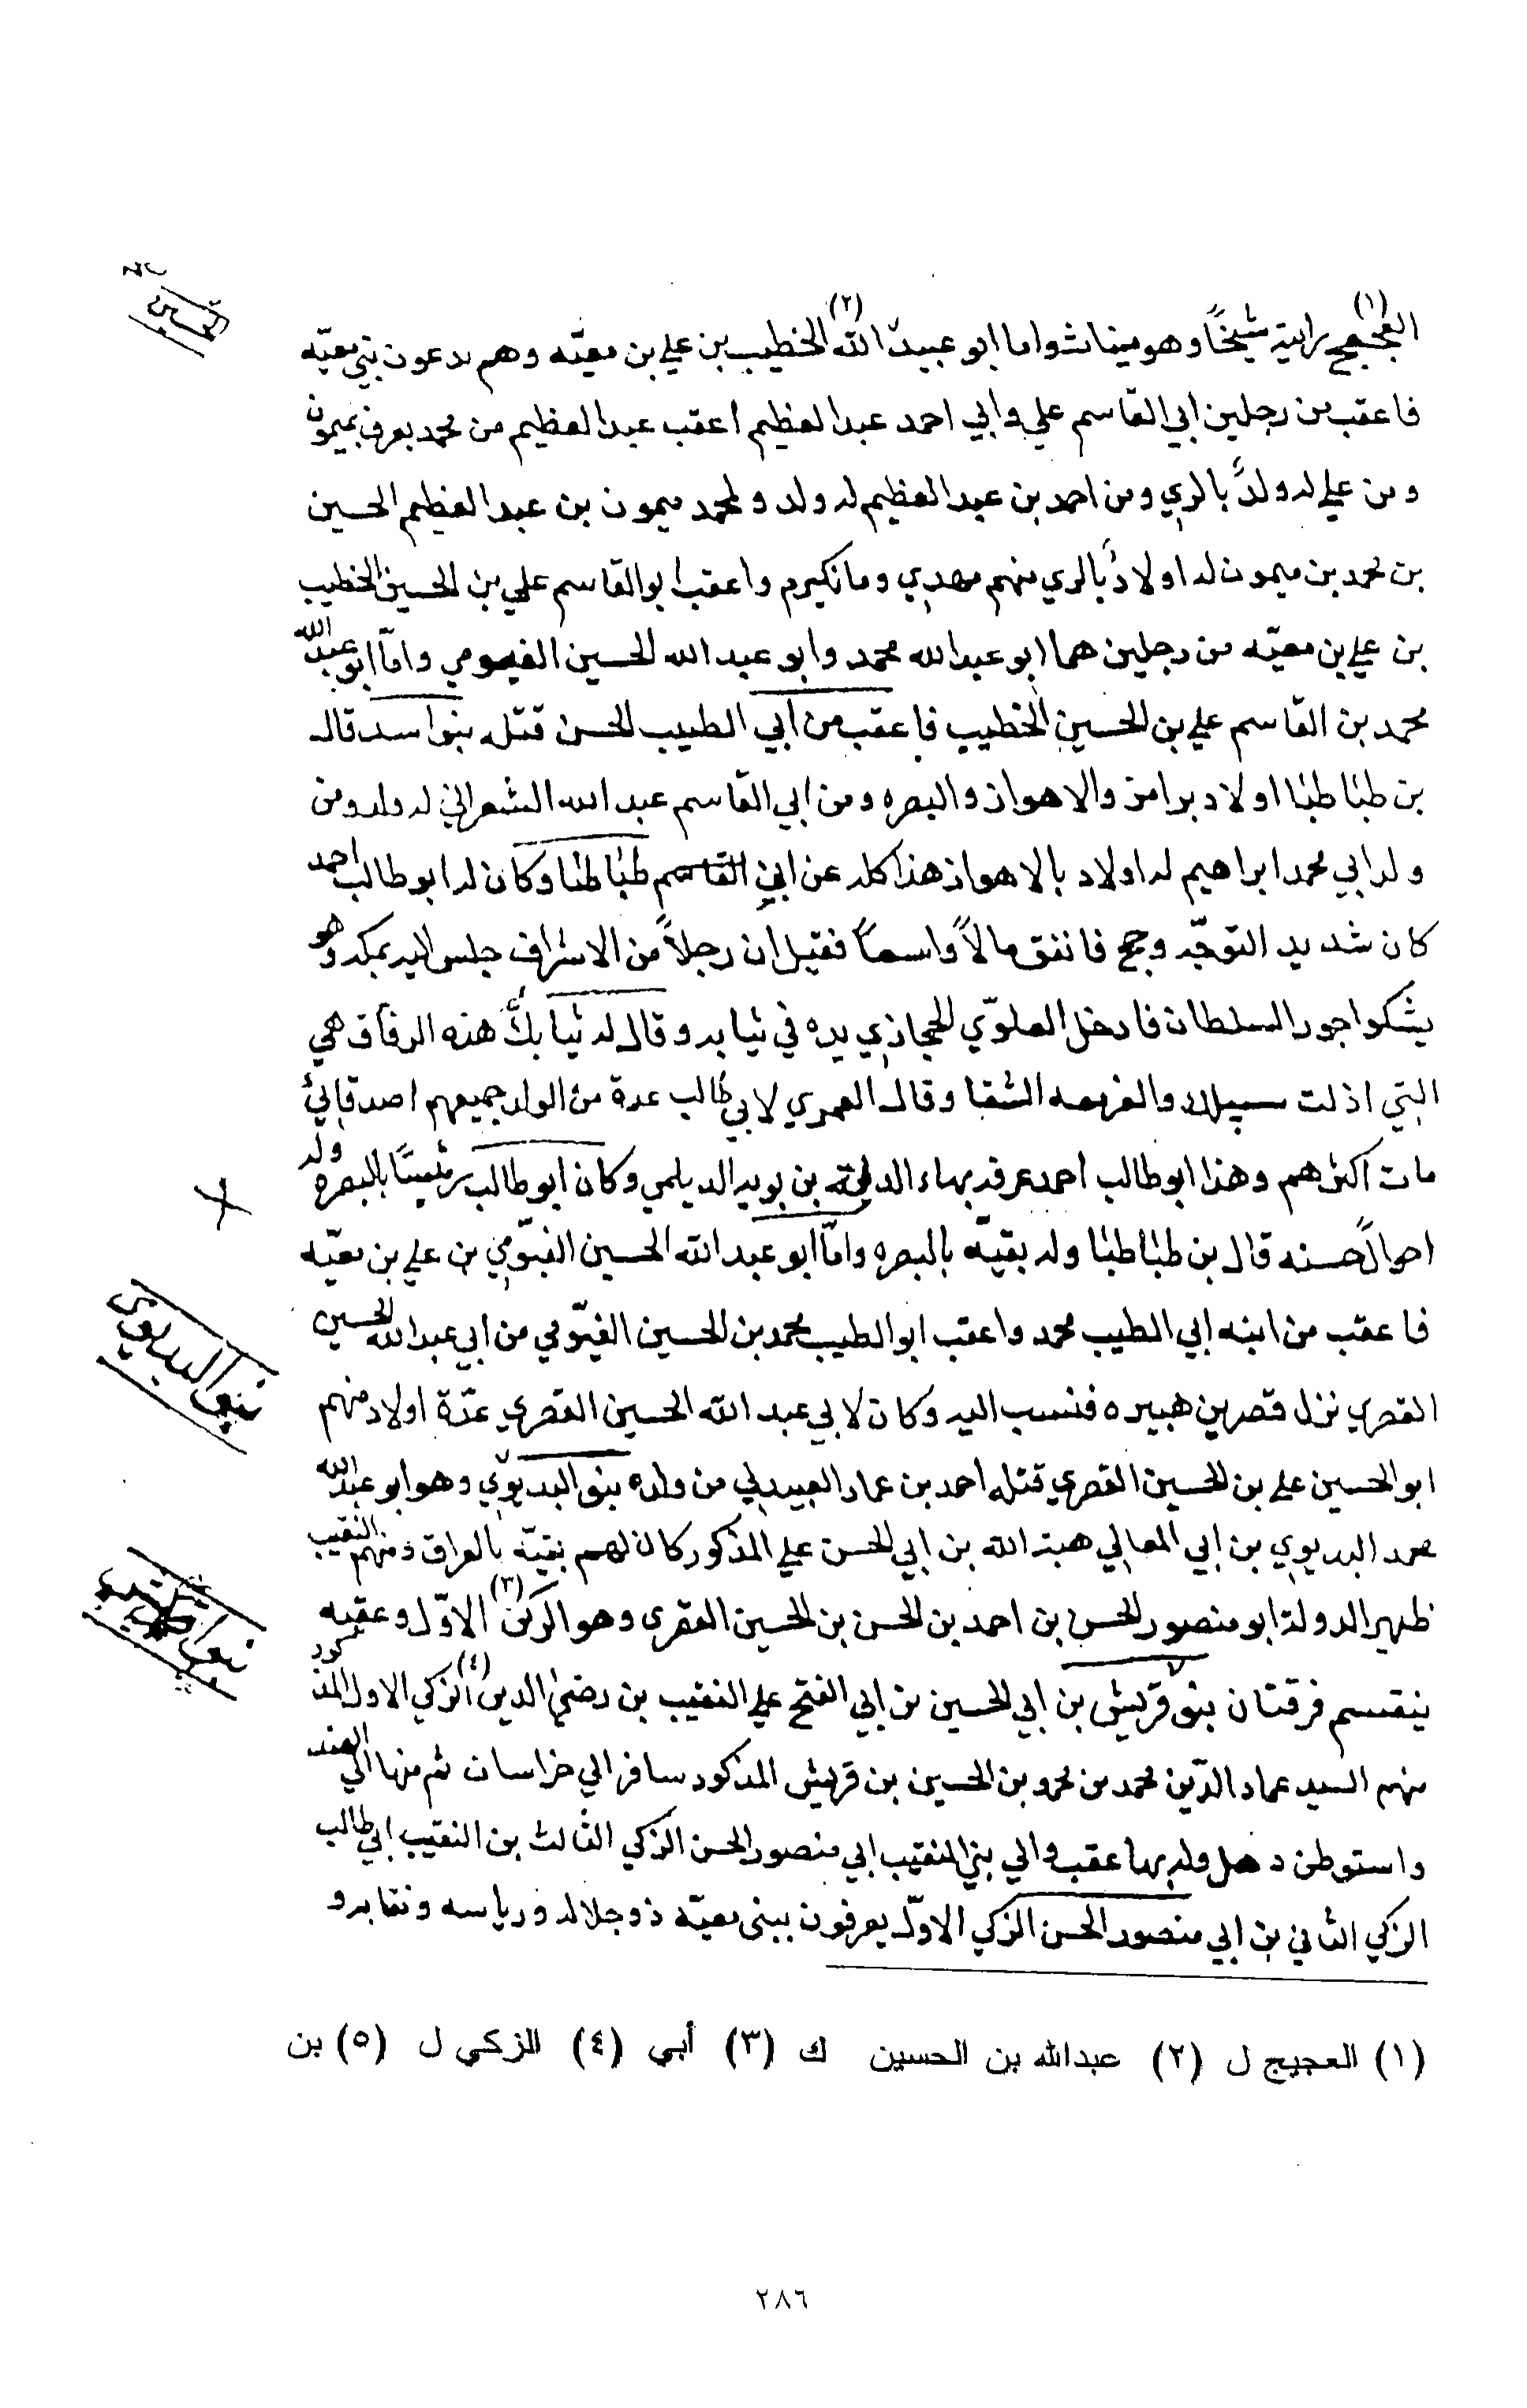 العجعج (١) رايته شيخًا وهو ميناث واما ابو عبيد الله (٢) الخطيب بن علي بن معيّه وهم يدعون بني معيّه
فاعقب من رجلين ابي القاسم علي وابي احمد عبد العظيم اعقب عبد العظيم من محمد يعرف بميمون
ومن علي له ولدٌ بالري ومن احمد بن عبد العظيم له ولد ولمحمد ميمون بن عبد العظيم الحسين
بن محمد بن ميمون له اولادٌ بالري منهم مهدي ومانكيرم واعقب ابو القاسم علي بن الحسين الخطيب
بن علي بن معيّه من رجلين هما ابو عبد الله محمد وابو عبد الله الحسين الفيومي وامّا ابو عبد الله
محمد بن القاسم علي بن الحسين الخطيب فاعقب من ابي الطيب الحسن قتله بنو اسد قال
بن طباطبا اولاد برامز والاهواز والبصره ومن ابي القاسم عبد الله الشعراني له ولد ومن
ولد ابي محمد ابراهيم له اولاد بالاهواز هذا كله عن ابي القاسم طباطبا وكان له ابو طالب احمد
كان شديد التوجّه وحج فانفق مالاً واسعاً فقيل ان رجلاً من الاشراف جلس اليه بمكه وهو
يشكوا جور السلطان فادخل العلوّي الحجازي يده في ثيابه وقال له ثيابكَ هذه الرقاق هي
التي اذلت والفرمعه الشقا وقال العمري لابي طالب عدة من الولد جميعهم اصدقائي
مات اكثرهم وهذا ابو طالب احمد عرفه بهاء الدوله بن بويه الديلمي وكان ابو طالب رئيسًا بالبصره وله
احوالٌ حسنه قال بن طباطبا وله بقيّه بالبصره وامّا ابو عبد الله الحسين الفيّومي بن علي بن معيّه
فاعقب من ابنه ابي الطيب محمد واعقب ابو الطيب محمد بن الحسين الفيّومي من ابي عبد الله الحسين
القصري نزل قصر بن هبيره فنسب اليه وكان لابي عبد الله الحسين القصري عدّة اولاد منهم
ابو الحسين علي بن الحسين القصري قتله احمد بن عمار العبيدلي من ولده بنو البديوّي وهو ابو عبد الله
محمد البديوي بن ابي المعالي هبة الله بن ابي الحسن علي المذكور كان لهم بقيّه بالعراق ومنهم النقيب
ظهير الدولة ابو منصور الحسن بن احمد بن الحسن بن الحسين القصري وهو الزكي (٣) الاوّل وعقبه
ينقسم فرقتان بنو قريش بن ابي الحسين بن ابي الفتح علي النقيب بن رضي الدين (٤) الزكي الاول المذكور
منهم السيد عماد الدّين محمد بن محمود بن الحسين بن قريش المذكور سافر الي خراسان ثم منها الي الهند
واستوطن دهل وله بها عقب والي بني النقيب ابي منصور الحسن الزكي الثالث بن النقيب ابي طالب
الزكي الثاني بن ابي منصور الحسن الزكي الاوّل يعرفون ببنى معيّه ذو جلاله ورياسه ونقابه و
الحسين
بنو البديوى
(١) العجيج ل (٢) عبدالله بن الحسين ك (٣) أبي (٤) الزكي ل (٥) بن
٢٨٦